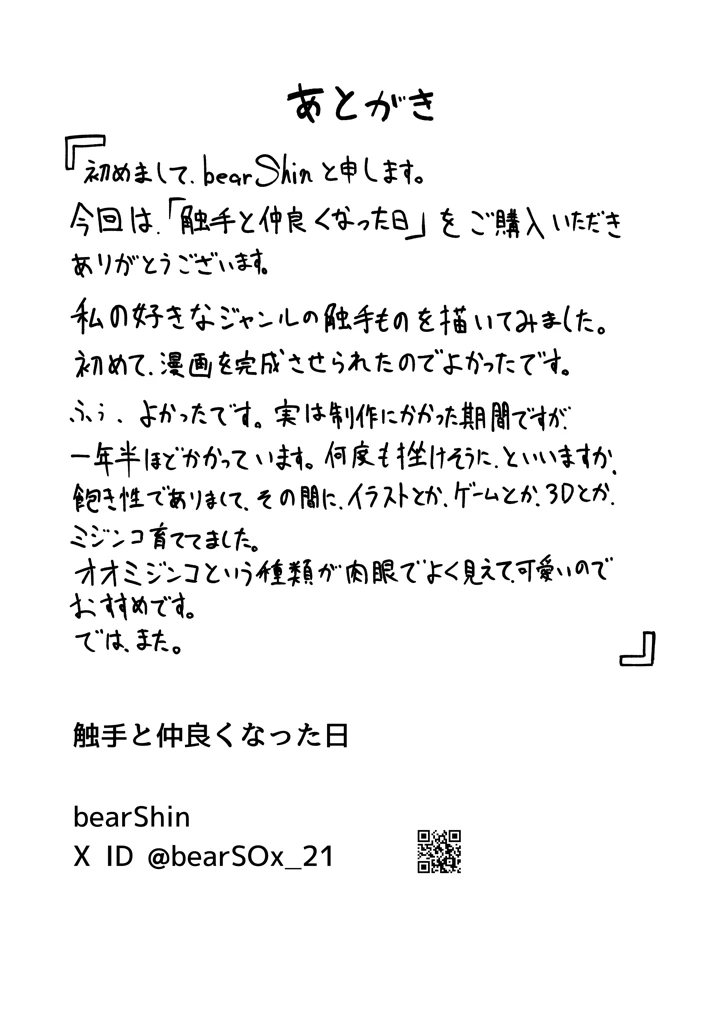 あとがき
『初めまして、bearShinと申します。
今回は、「触手と仲良くなった日」をご購入いただき
ありがとうございます。
私の好きなジャンルの触手ものを描いてみました。
初めて、漫画を完成させられたのでよかったです。
ふぅ、よかったです。実は制作にかかった期間ですが、
一年半ほどかかっています。何度も挫けそうに、といいますか、
飽き性でありまして、その間に、イラストとか、ゲームとか、3Dとか、
ミジンコ育ててました。
オオミジンコという種類が肉眼でよく見えて、可愛いので
おすすめです。
では、また。』
触手と仲良くなった日
bearShin
X ID @bearSOx_21